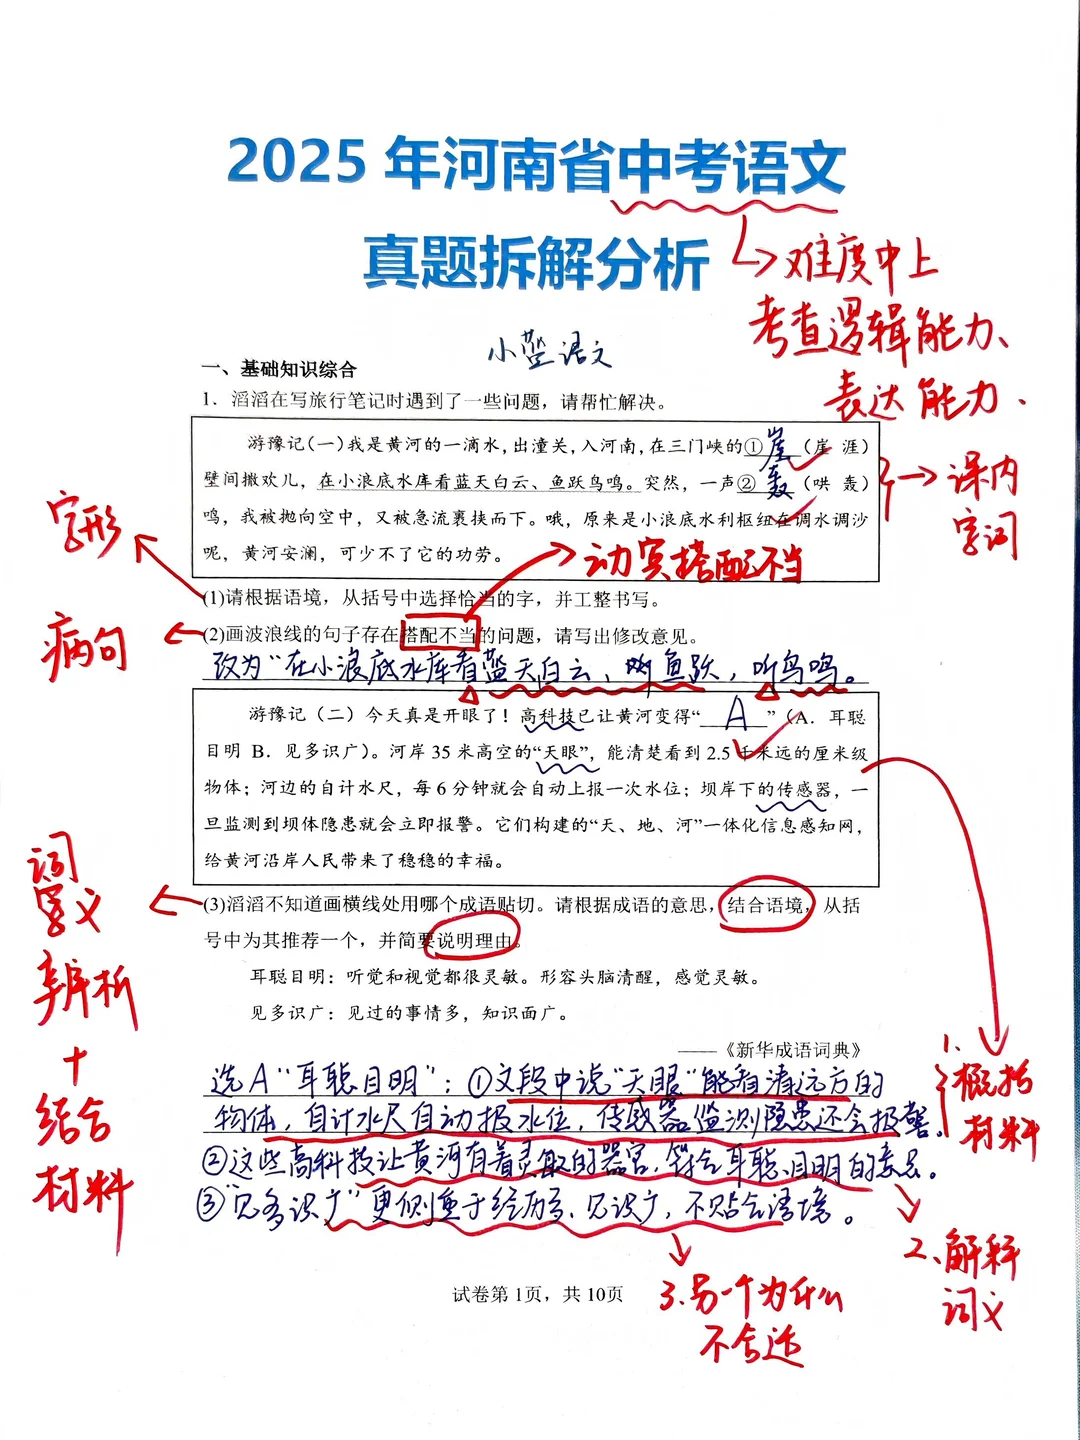 2025 年河南省中考语文
真题拆解分析
难度中上
考查逻辑能力、
表达能力.
小蓝语文
一、基础知识综合
1．滔滔在写旅行笔记时遇到了一些问题，请帮忙解决。
游豫记（一）我是黄河的一滴水，出潼关，入河南，在三门峡的①崖（崖 涯）
壁间撒欢儿，在小浪底水库看蓝天白云、鱼跃鸟鸣。突然，一声②轰（哄 轰）
鸣，我被抛向空中，又被急流裹挟而下。哦，原来是小浪底水利枢纽在调水调沙
呢，黄河安澜，可少不了它的功劳。
课内
字词
字形
动宾搭配不当
(1)请根据语境，从括号中选择恰当的字，并工整书写。
病句
(2)画波浪线的句子存在搭配不当的问题，请写出修改意见。
改为“在小浪底水库看蓝天白云、听鱼跃，听鸟鸣。
游豫记（二）今天真是开眼了！高科技已让黄河变得“A”（A．耳聪
目明 B．见多识广）。河岸 35 米高空的“天眼”，能清楚看到 2.5 千米远的厘米级
物体；河边的自计水尺，每 6 分钟就会自动上报一次水位；坝岸下的传感器，一
旦监测到坝体隐患就会立即报警。它们构建的“天、地、河”一体化信息感知网，
给黄河沿岸人民带来了稳稳的幸福。
词
义
辨析
+
结合
材料
(3)滔滔不知道画横线处用哪个成语贴切。请根据成语的意思，结合语境，从括
号中为其推荐一个，并简要说明理由。
耳聪目明：听觉和视觉都很灵敏。形容头脑清醒，感觉灵敏。
见多识广：见过的事情多，知识面广。
——《新华成语词典》
选A“耳聪目明”：①文段中说“天眼”能看清远方的
物体，自计水尺自动报水位，传感器监测隐患还会报警。
②这些高科技让黄河有着灵敏的器官，符合耳聪目明的意思。
③“见多识广”更侧重于经历多、见识广，不贴合语境。
1.
概括
材料
2.解释
词义
3.另一个为什么
不合适
试卷第 1页，共 10页